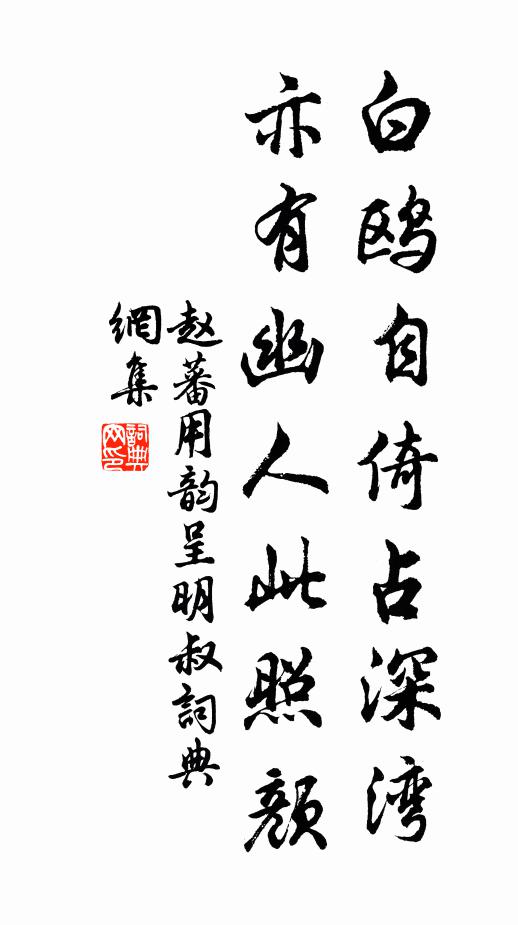 白鸥自倚占深湾
亦有幽人此照颜
赵蕃用韵呈明叔詞典
網集
詞典
网印